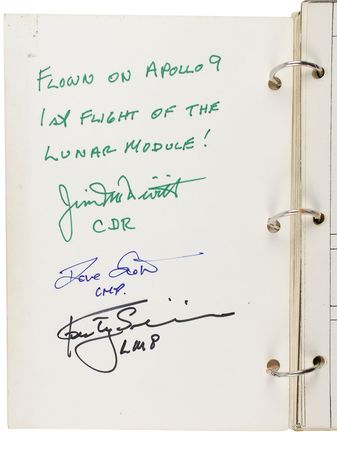 FLOWN ON APOLLO 9
1st FLIGHT OF THE
LUNAR MODULE!
Jim McDivitt
CDR
Dave Scott
CMP.
Rusty Sch
LMP